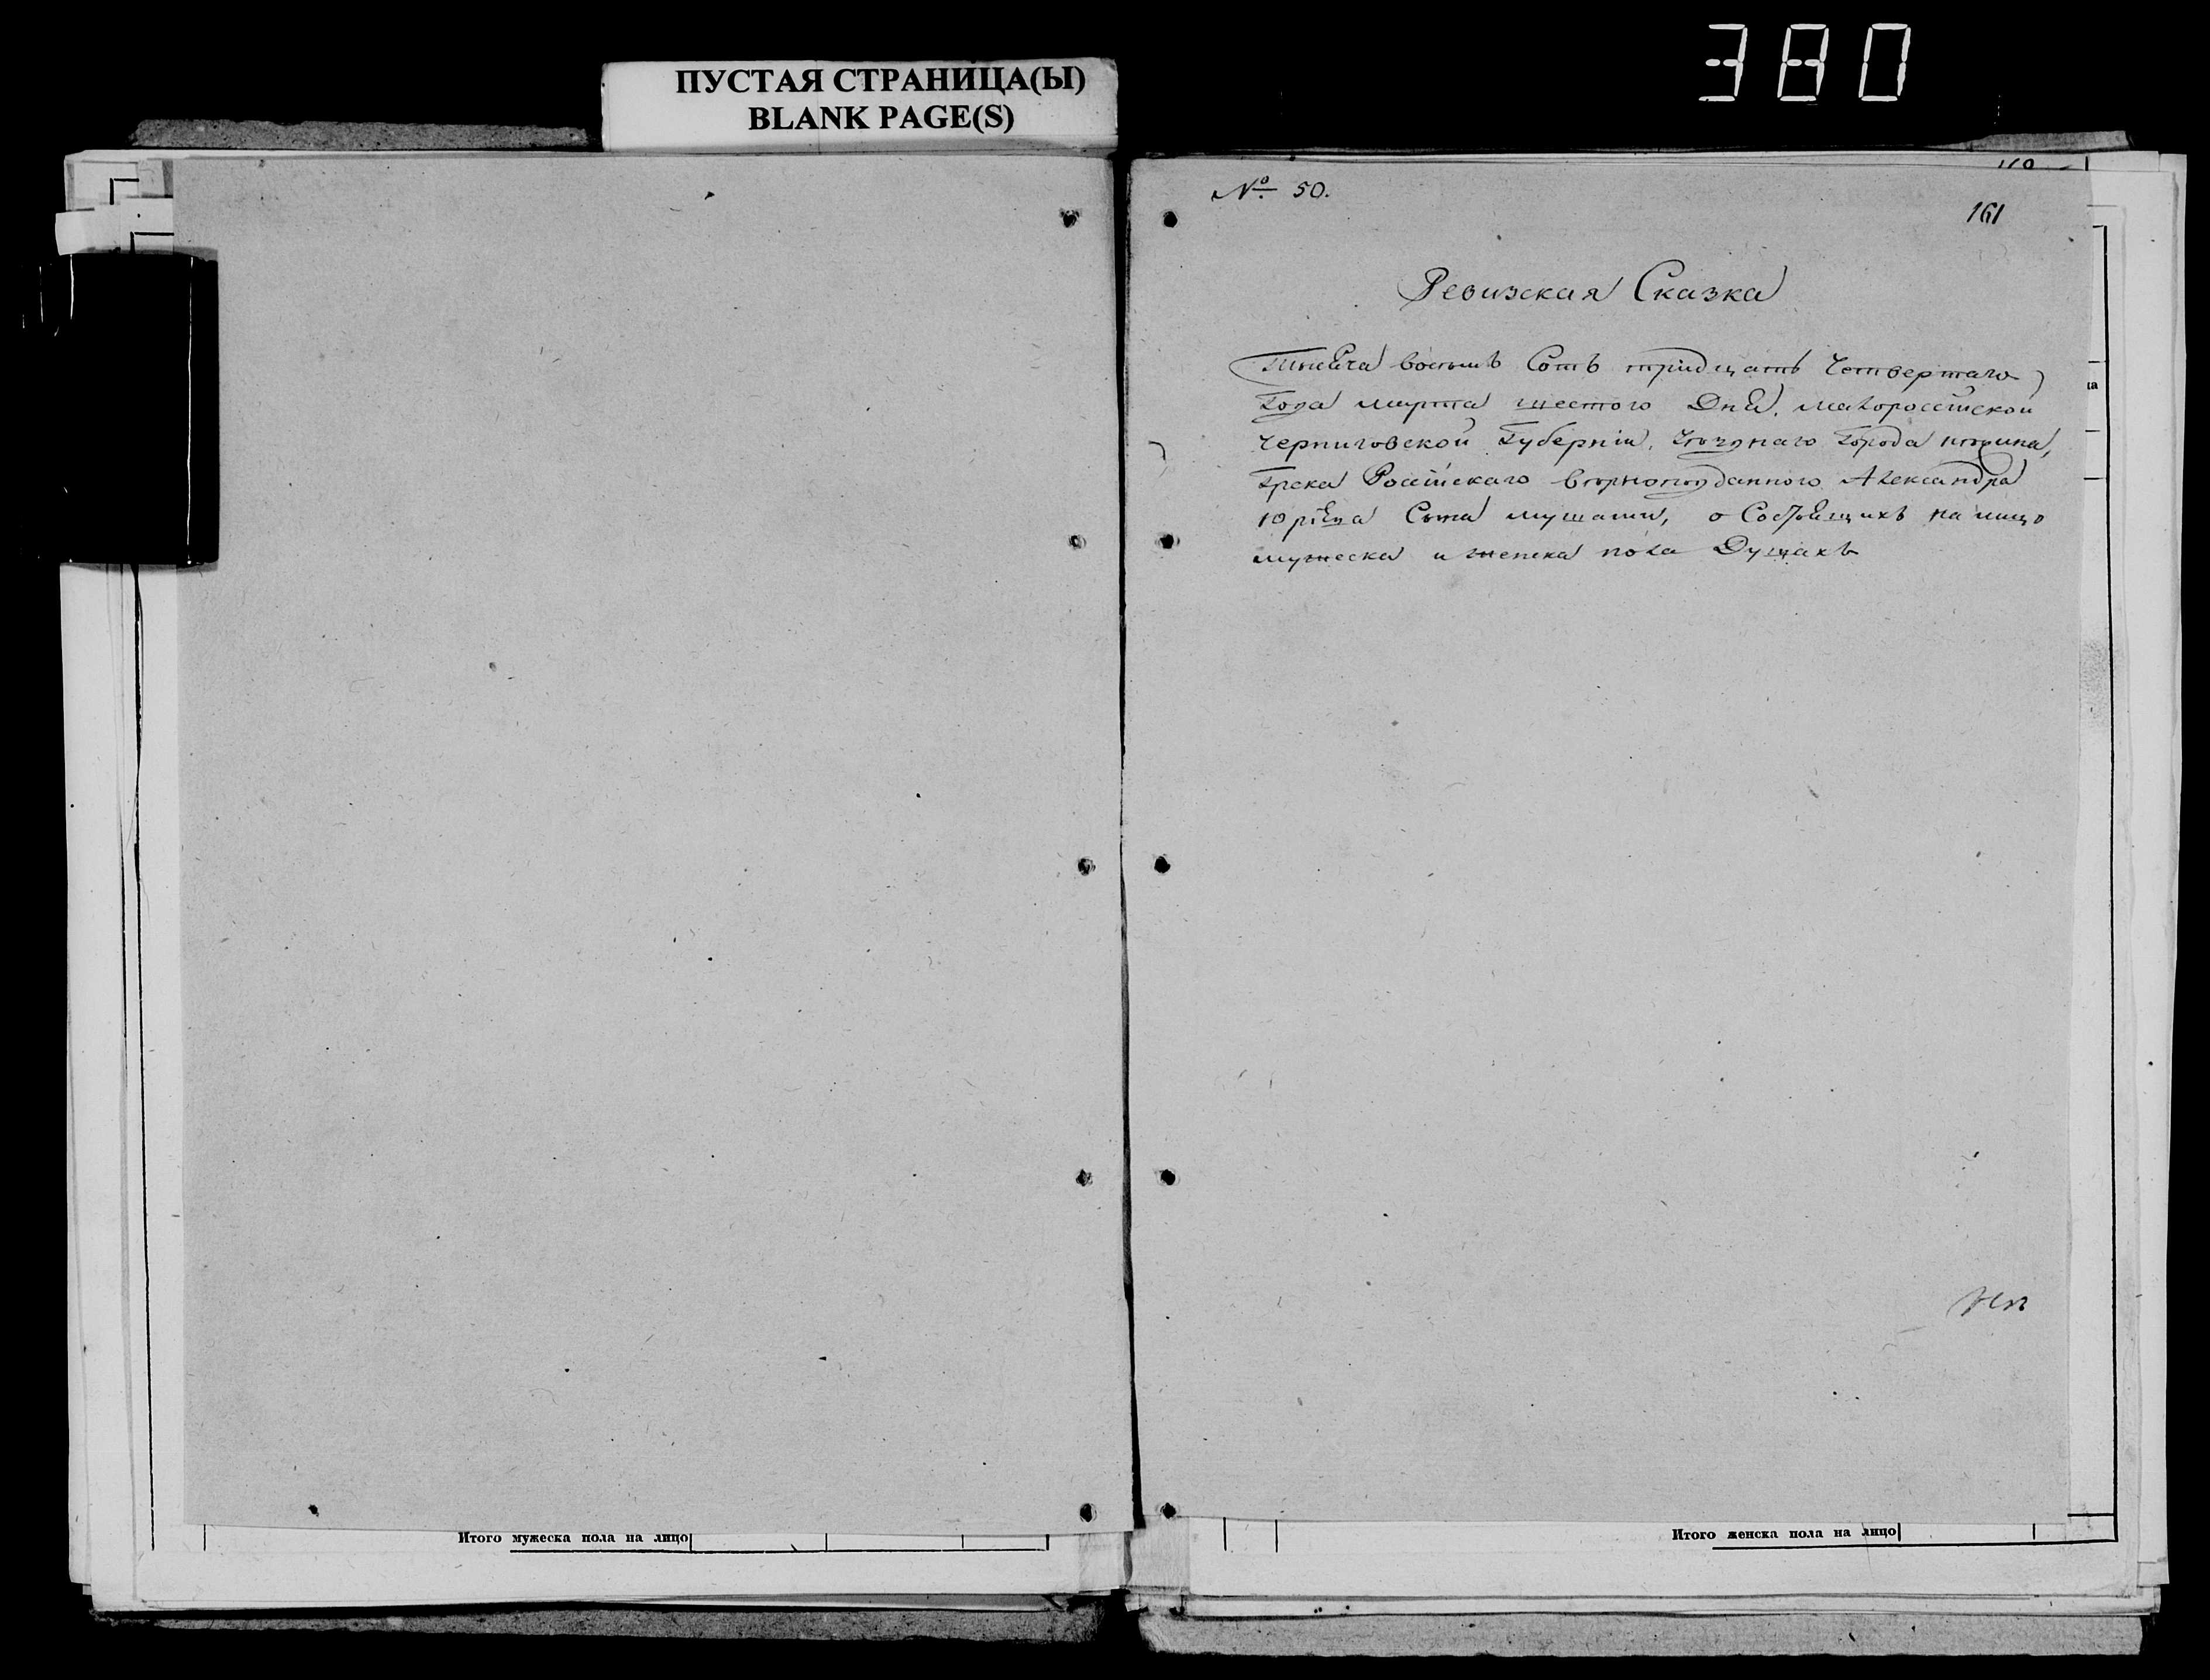 380
ПУСТАЯ СТРАНИЦА(Ы)
BLANK PAGE(S)
№ 50.
161
Ревизская Сказка
Тысяча восемь Сотъ тридцать Четвертаго
Года марта шестого Дня, Малороссійской
Черниговской Губерніи, города Нежина,
Грека Россійскаго верноподданного Александра
Юрїева Сына о Состоящихъ на лицо
мужеска и женска пола Душахъ
Итого мужеска пола на лицо
Итого женска пола на лицо